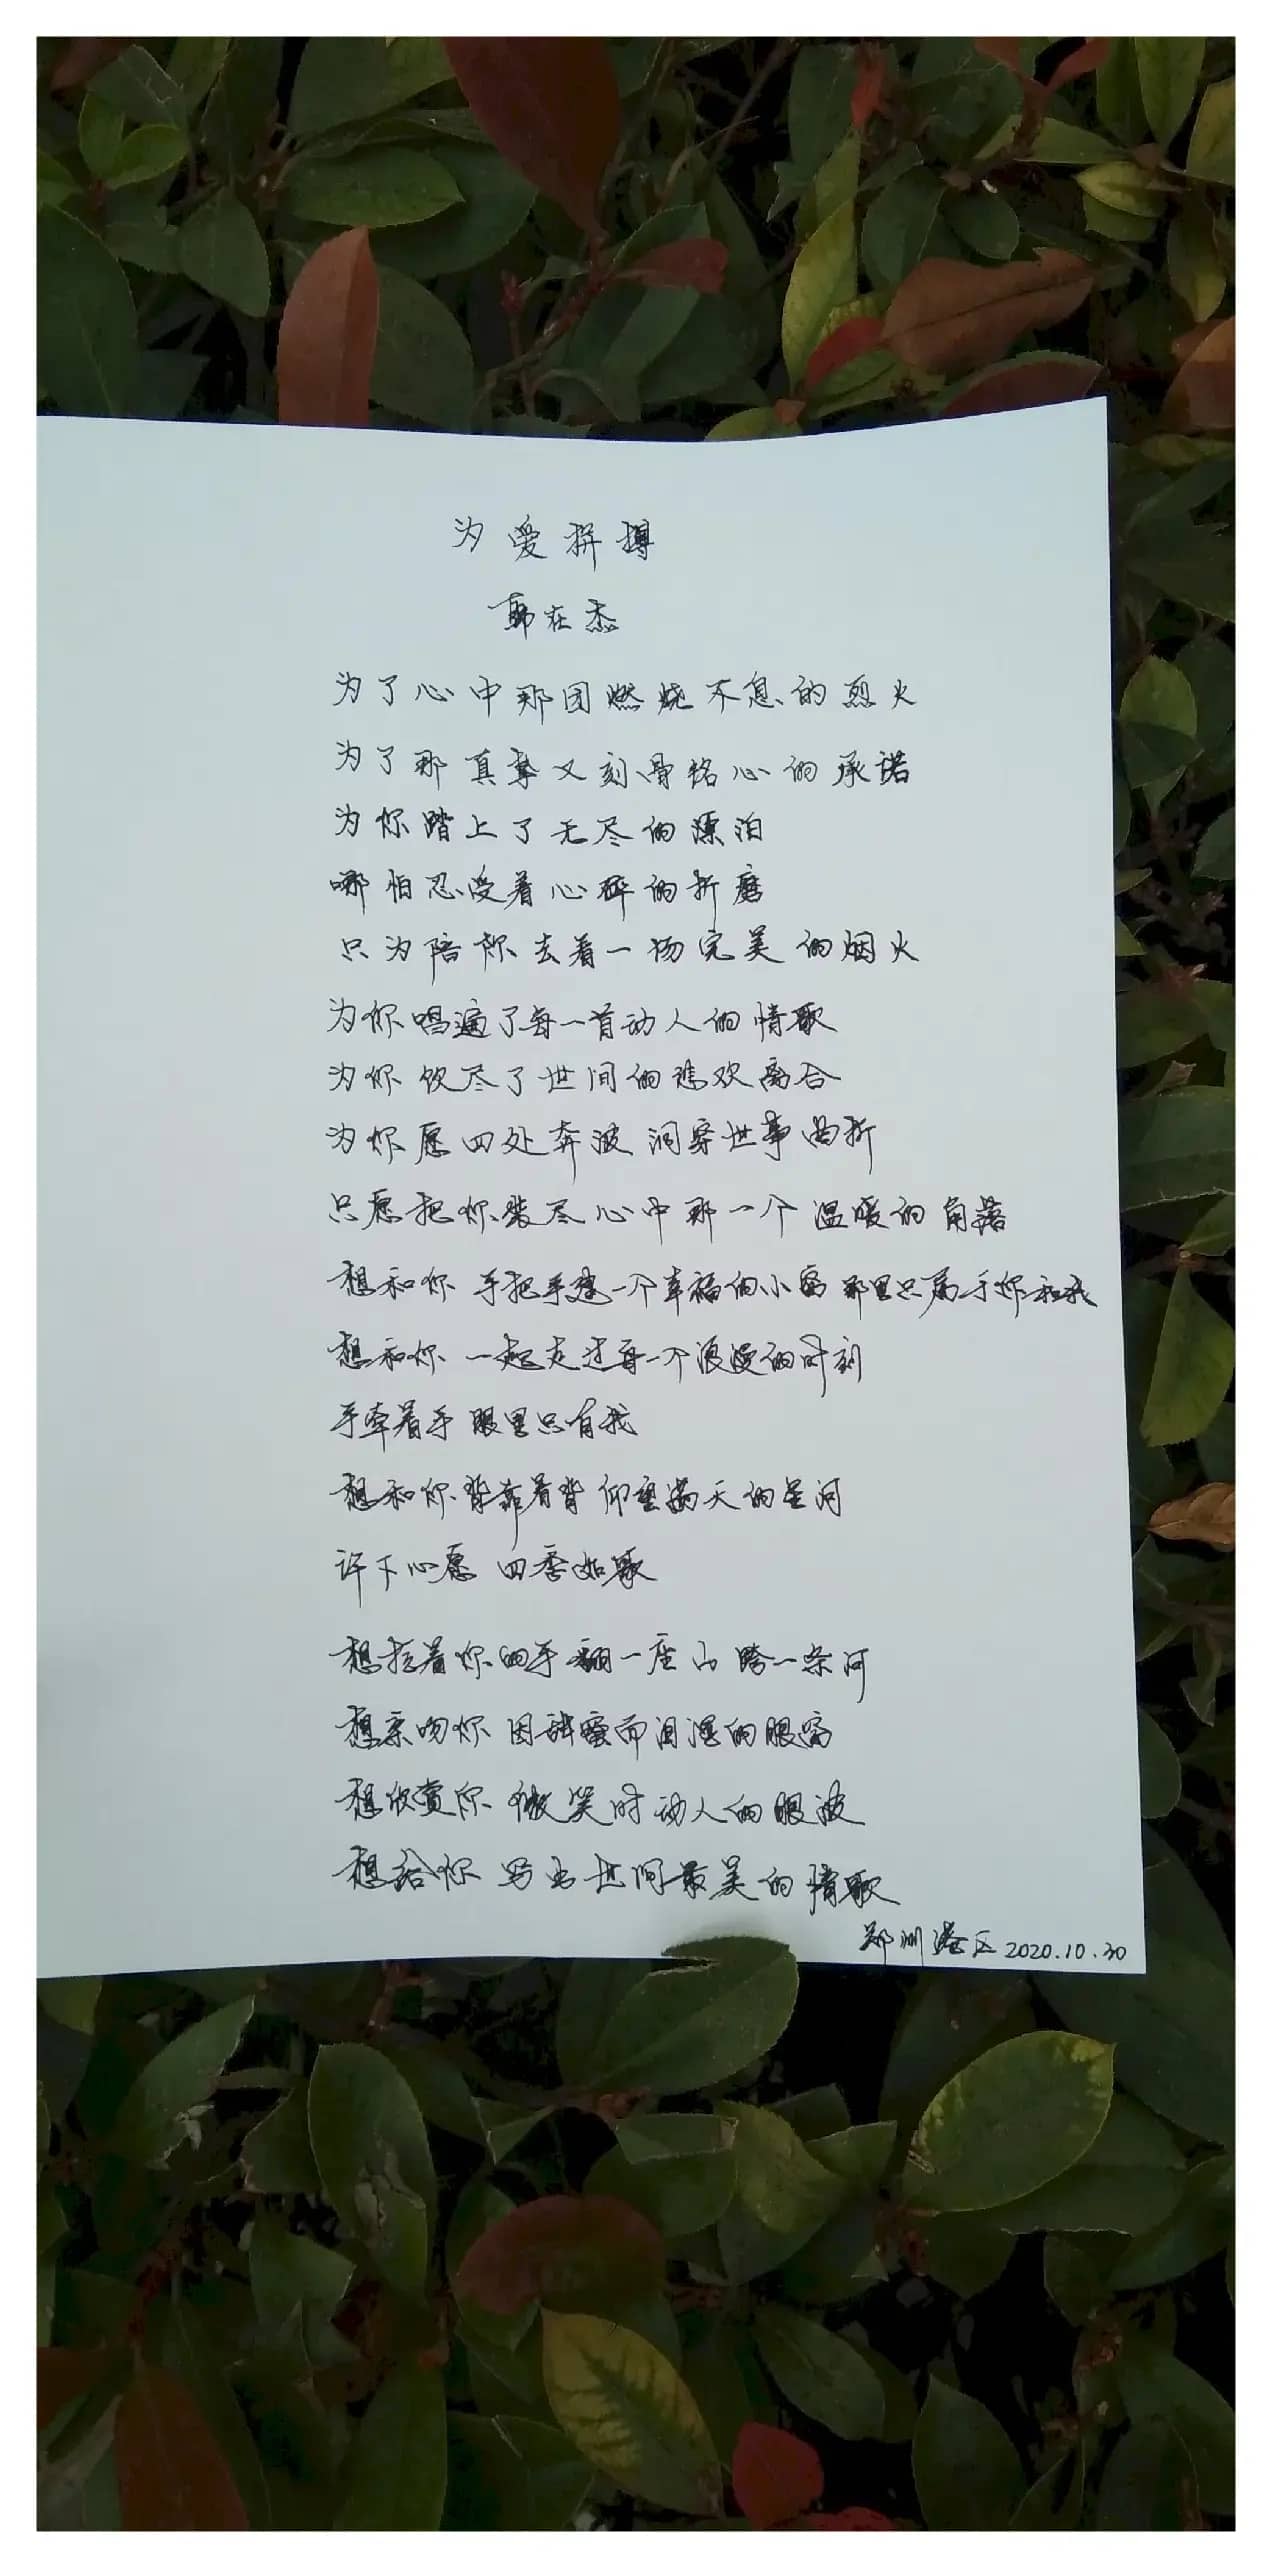 为爱拼搏
郭在杰
为了心中那团燃烧不息的烈火
为了那真挚又刻骨铭心的承诺
为你踏上了无尽的漂泊
哪怕忍受着心碎的折磨
只为陪你去看一场完美的烟火
为你唱遍了每一首动人的情歌
为你饮尽了世间的悲欢离合
为你愿四处奔波 洞察世事曲折
只愿把你装尽心中那一个温暖的角落
想和你 手把手建一个幸福的小窝 那里只属于你和我
想和你 一起走过每一个浪漫的时刻
手牵着手 眼里只有我
想和你背靠着背 仰望满天的星河
许下心愿 四季如歌
想拉着你的手 翻一座山 跨一条河
想亲吻你 因甜蜜而泪湿的眼窝
想欣赏你 微笑时动人的眼波
想给你 写出世间最美的情歌
郑州港区 2020.10.30